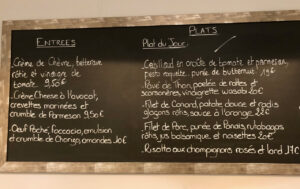 ENTREES
- Crème de Chèvre, betterave
rôtie et vinaigre de
tomate 9,50€
- Crème Cheese à l'avocat,
crevettes marinées et
crumble de Parmesan 9,50€
- Oeuf Poché, foccacia, émulsion
et crumble de Chorizo, amandes 10€
PLATS
Plat du Jour:
- Cabillaud en croûte de tomate et parmesan,
pesto roquette, purée de butternut 19€
- Pavé de Thon, poêlée de raves et
scorsonères, vinaigrette wasabi 20€
- Filet de Canard, patate douce et radis
glaçons rôtis, sauce à l'orange 22€
- Filet de Porc, purée de Panais, rutabagas
rôtis, jus balsamique et noisettes 20€
- Risotto aux champignons rosés et lard 17€